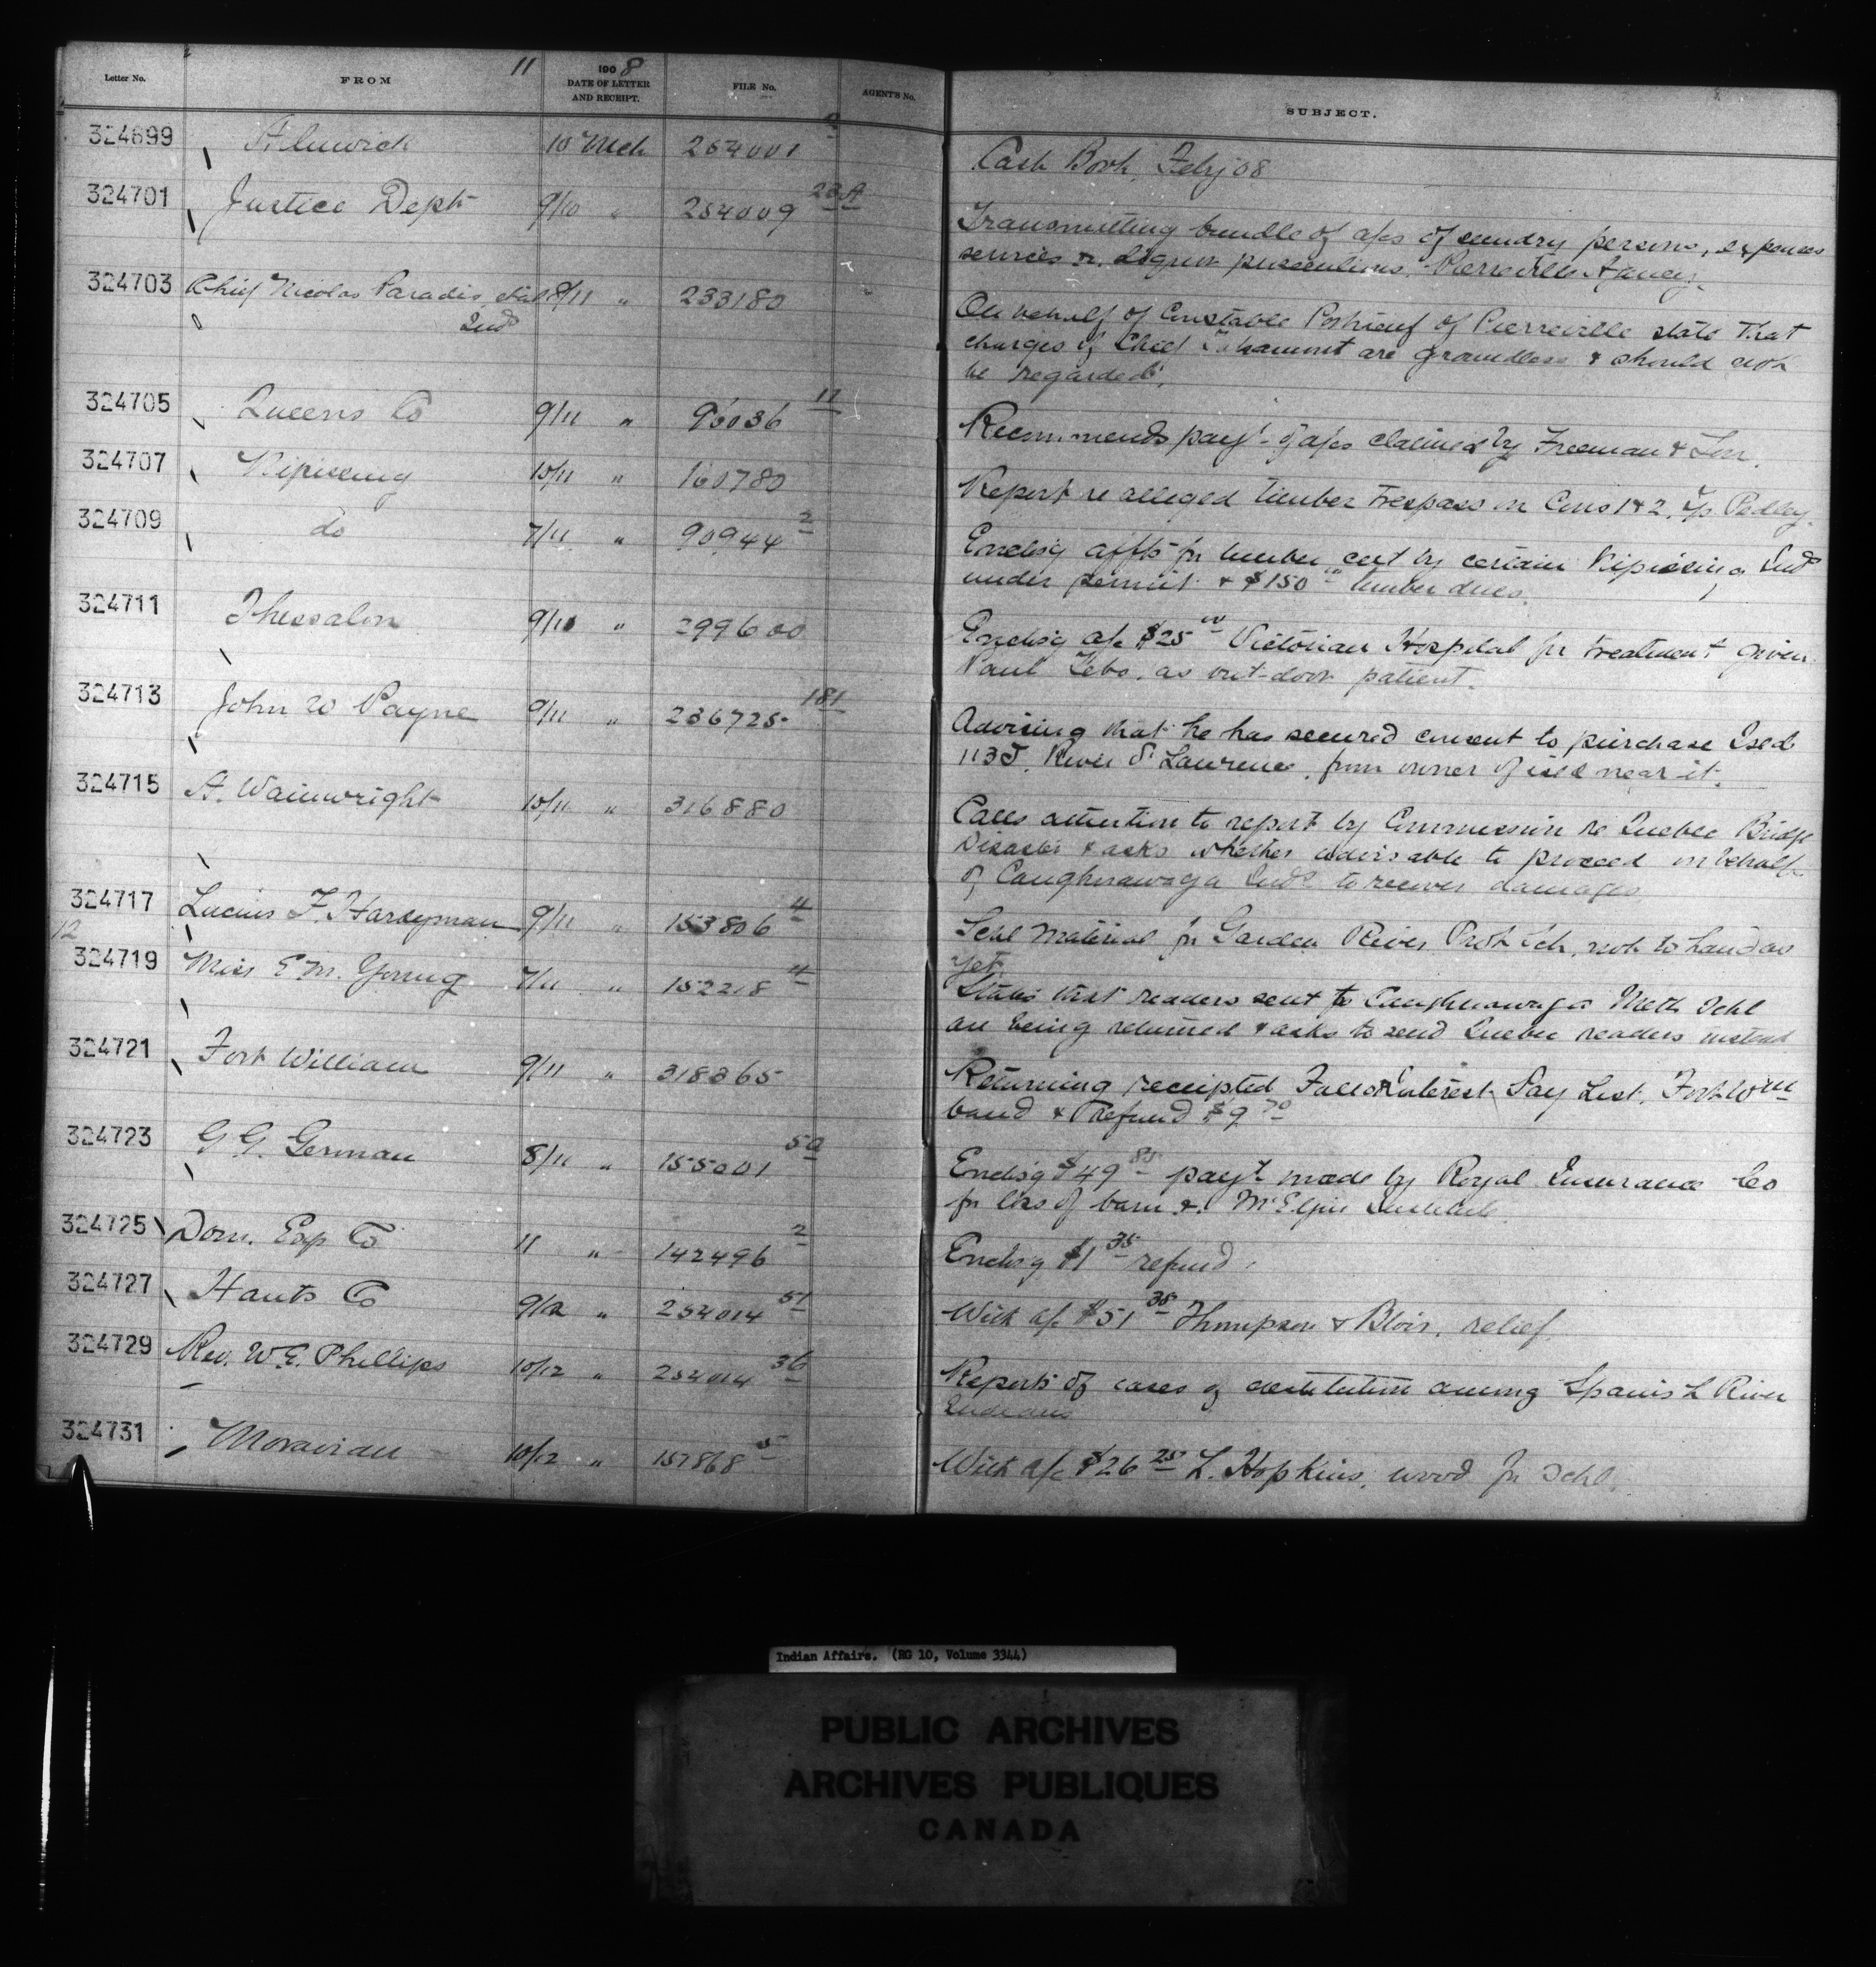 Letter No. FROM 11 1908 DATE OF LETTER AND RECEIPT. FILE No. AGENT'S No. SUBJECT.
324699 Alnwick 10 Mch 254001 Cash Book, Feby 08
324701 Justice Dept 9/10 " 254009 23A Transmitting bundle of a/cs of sundry persons, expenses
services re. liquor prosecutions. Pierreville Agency.
324703 Chief Nicolas Paradis, et al 8/11 " 233180 On behalf of Constable of Pierreville state that
Inds charges of Chief are groundless & should not
be regarded.
324705 Queens Co 9/11 " 96036 11 Recommends payt of a/cs claimed by Freeman & Son.
324707 Nipissing 10/11 " 160780 Report re alleged timber trespass on Cons 1 & 2, Tp Pedley.
324709 do 7/11 " 90944 2 Enclsg affts for timber cut by certain Nipissing Inds
under permit & $150 00 timber dues.
324711 Thessalon 9/10 " 299600 Enclsg a/c $25 00 Victorian Hospital for treatment given
Paul Zebo, as out-door patient.
324713 John W Payne 9/11 " 236725 181 Advising that he has secured consent to purchase Isld
113J, River St Lawrence, from owner of isld near it.
324715 A. Wainwright 10/11 " 316880 Calls attention to report by Commission re Quebec Bridge
Disaster & asks whether advisable to proceed on behalf
of Caughnawaga Inds to recover damages.
324717 Lucius F. Hardyman 9/11 " 153806 4 Schl material for Garden River Prot Sch. not to hand as
yet.
12
324719 Miss E M. Young 7/11 " 152218 4 States that readers sent to Caughnawaga Meth Schl
are being returned & asks to send Quebec readers instead
324721 Fort William 9/11 " 318365 Returning receipted Interest Pay List, Fort Wm
band & refund $9 70
324723 G G. German 8/11 " 155001 50 Enclsg $49 85 payt made by Royal Insurance Co
for loss of barn &. Institute.
324725 Dom. Exp Co 11 " 142496 2 Enclsg $1 35 refund.
324727 Hants Co 9/12 " 254014 51 With a/c $51 38 Thompson & Blois. relief.
324729 Rev. W E. Phillips 10/12 " 254014 36 Reports of cases of destitution among Spanish River
Indians
324731 Moravian 10/12 " 157868 5 With a/c $26 25 L. Hopkins, wood for Schl.
Indian Affairs. (RG 10, Volume 3344)
PUBLIC ARCHIVES
ARCHIVES PUBLIQUES
CANADA